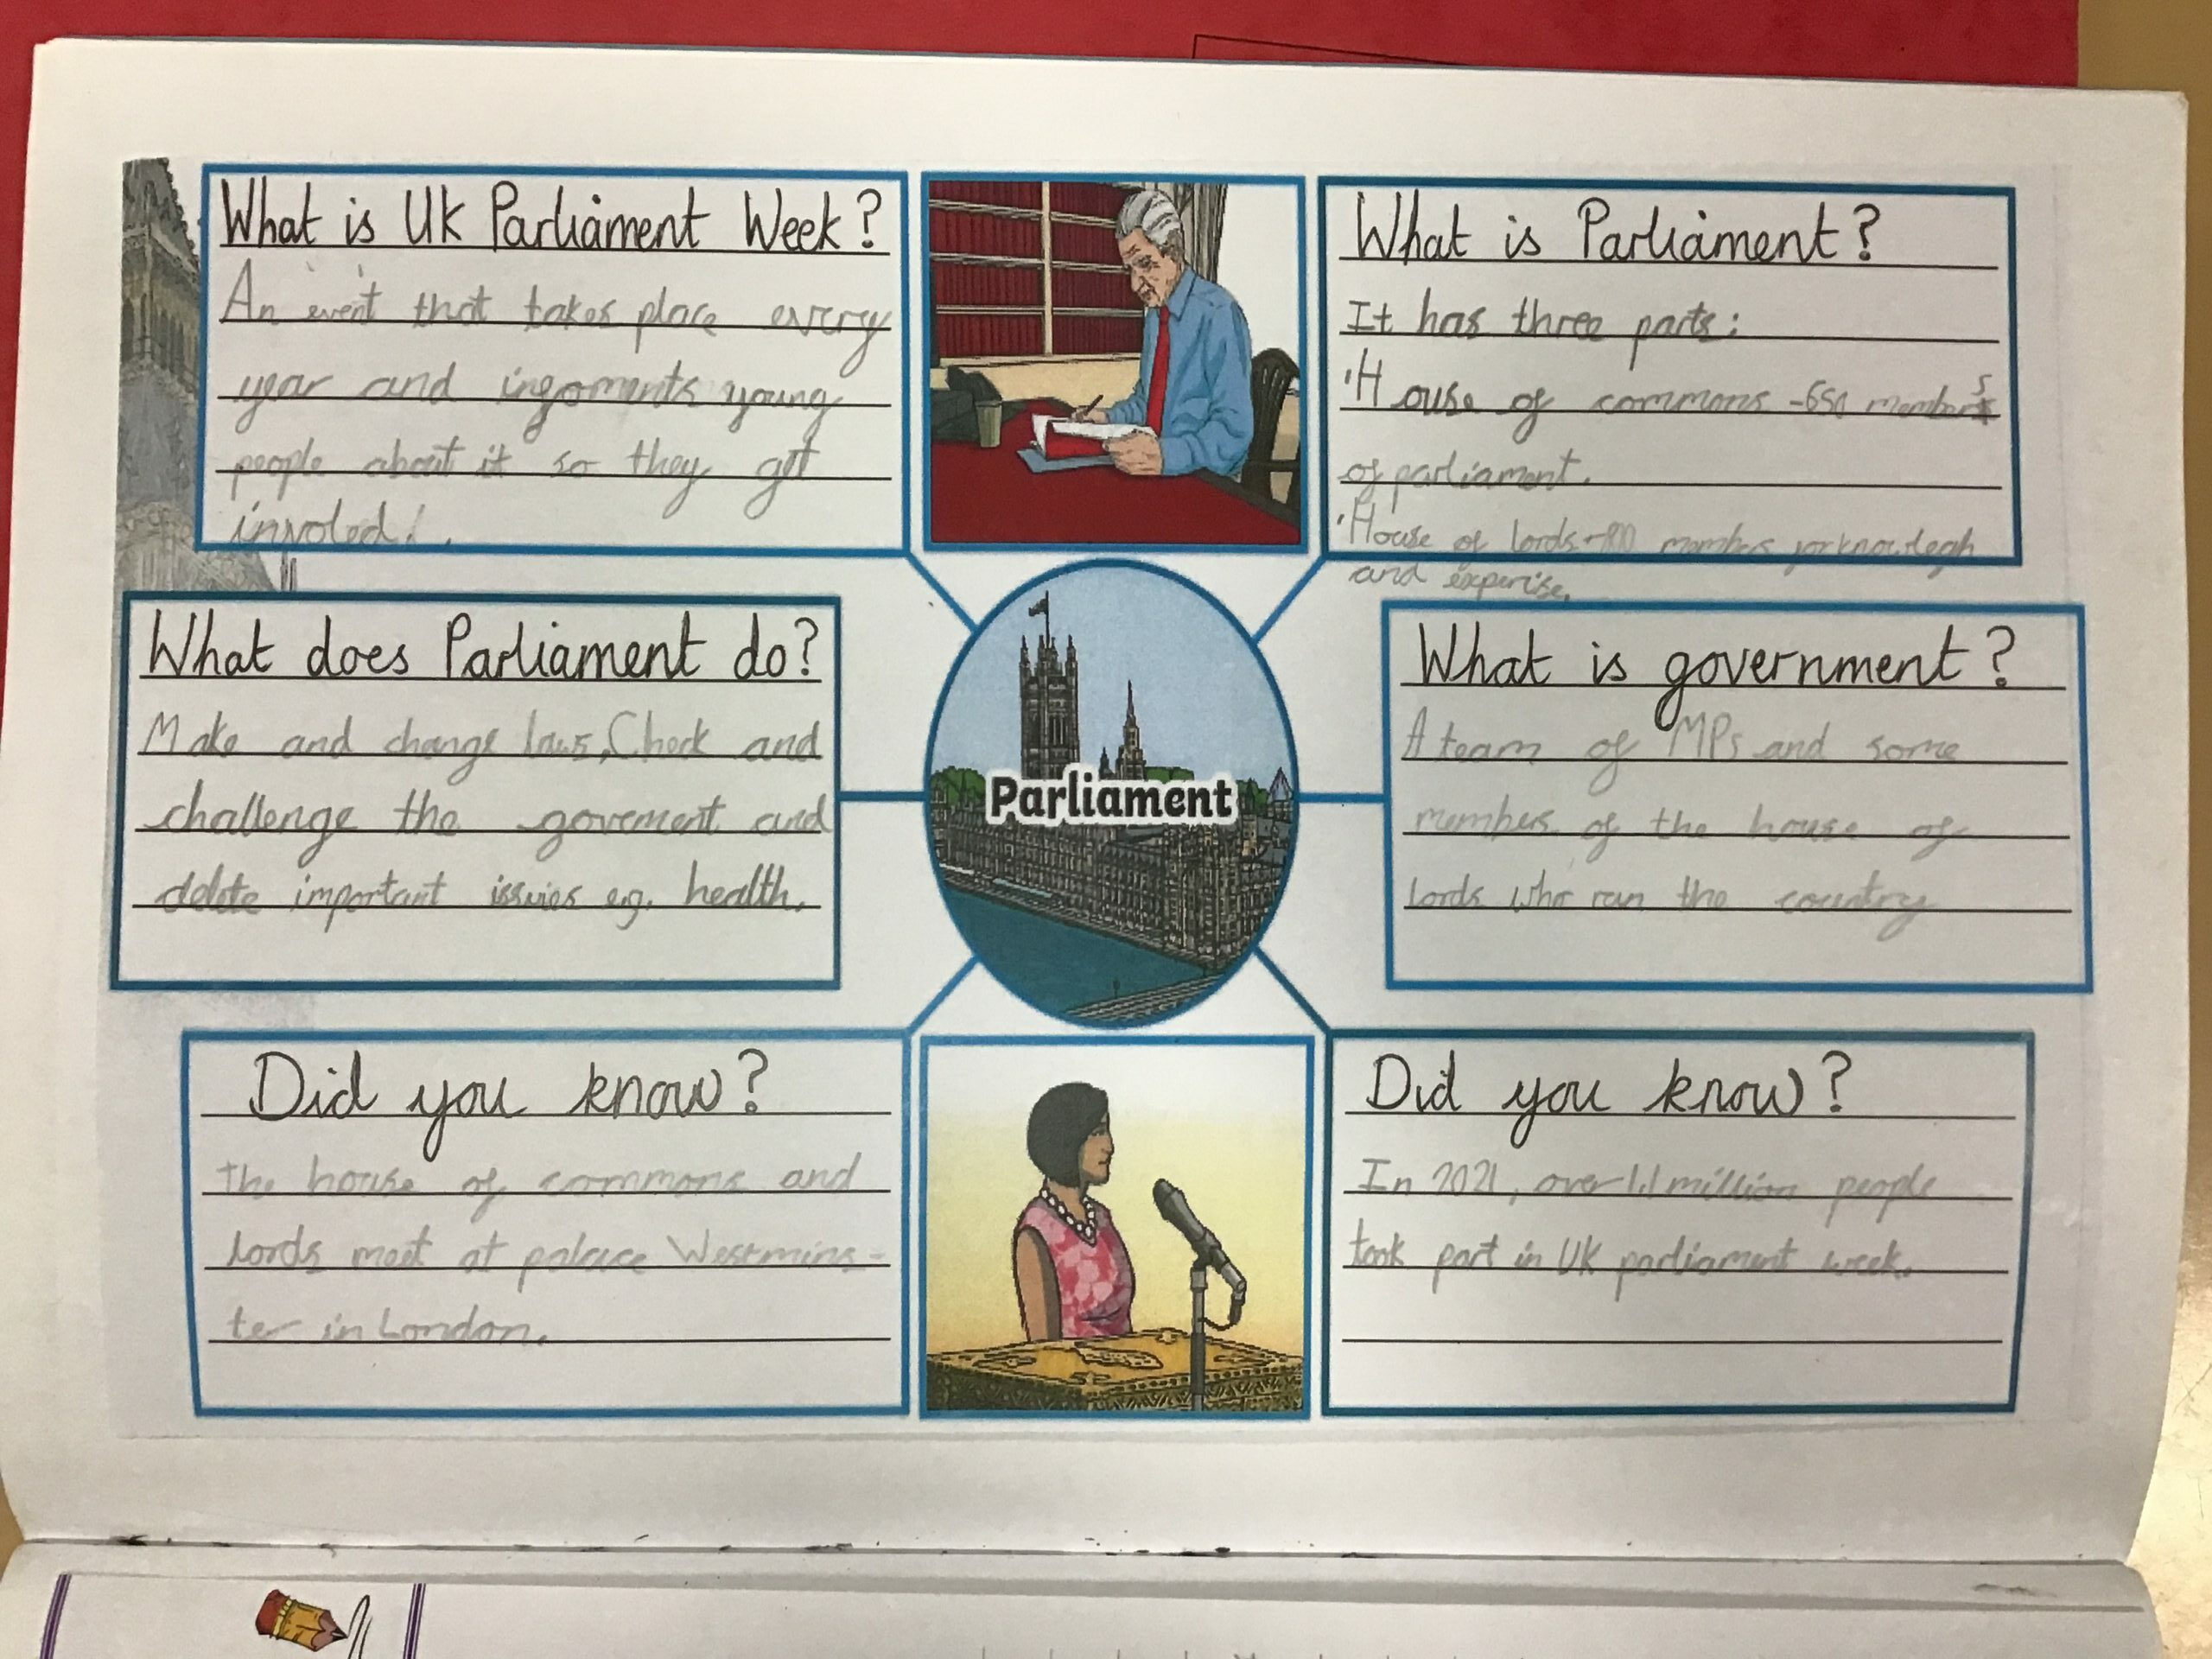 What is UK Parliament Week?
An event that takes place every
year and ingoments young
people about it so they get
involed!.
What is Parliament?
It has three parts:
House of commons -650 members
of parliament.
House of lords members for knowlegh
and experise.
What does Parliament do?
Make and change laws, Check and
challenge the goverment and
delete important issuies e.g. health.
Parliament
What is government?
A team of MPs and some
members of the house of
lords who run the country
Did you know?
The house of commons and
lords meet at palace Westmins-
ter in London.
Did you know?
In 2021, over 1.1 million people
took part in UK parliament week.